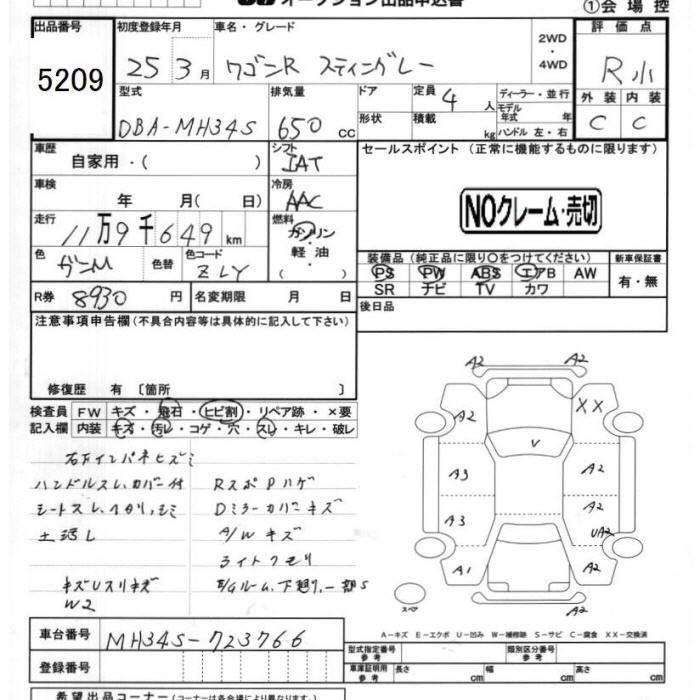 オークション出品申込書
①会場控
出品番号 初度登録年月 車名・グレード 評価点
5209 25 3月 ワゴンR スティングレー 2WD・4WD R小
型式 排気量 ドア 定員 4人 ディーラー・並行 外装 内装
DBA-MH34S 650cc 形状 積載 kg モデル年式 年 ハンドル 左・右 C C
車歴 シフト セールスポイント (正常に機能するものに限ります)
自家用・( ) IAT
車検 冷房
年 月( 日) AAC NOクレーム・売切
走行 燃料
11万9千649km ガソリン・軽油・( )
色 色替 色コード 装備品(純正品に限り〇をつけてください) 新車保証書
ガンM ZLY PS PW ABS エアB AW 有・無
SR ナビ TV カワ
R券 8930円 名変期限 月 日 後日品
注意事項申告欄(不具合内容等は具体的に記入して下さい)
修復歴 有 〔箇所 〕
検査員 FW キズ・飛石・ヒビ割・リペア跡・×要
記入欄 内装 キズ・汚レ・コゲ・穴・スレ・キレ・破レ
右下インパネヒズミ
ハンドルスレ、カバー付 RスポPハゲ
シートスレ、ヘタリ、シミ Dミラーカバーキズ
土汚レ A/Wキズ
ライトクモリ
キズUスリキズ E/Gルーム、下廻リ、一部S
W2
A2 A2
A2 XX
V
A3 A2
A3 A2
UA2
A1 A2
A2
スペア
A-キズ E-エクボ U-凹み W-補修跡 S-サビ C-腐食 XX-交換済
車台番号 MH34S-723766
型式指定番号 参考 類別区分番号 参考
登録番号 車庫証明用 参考 長さ cm 幅 cm 高さ cm
希望出品コーナー(コーナーは各会場により異なります)